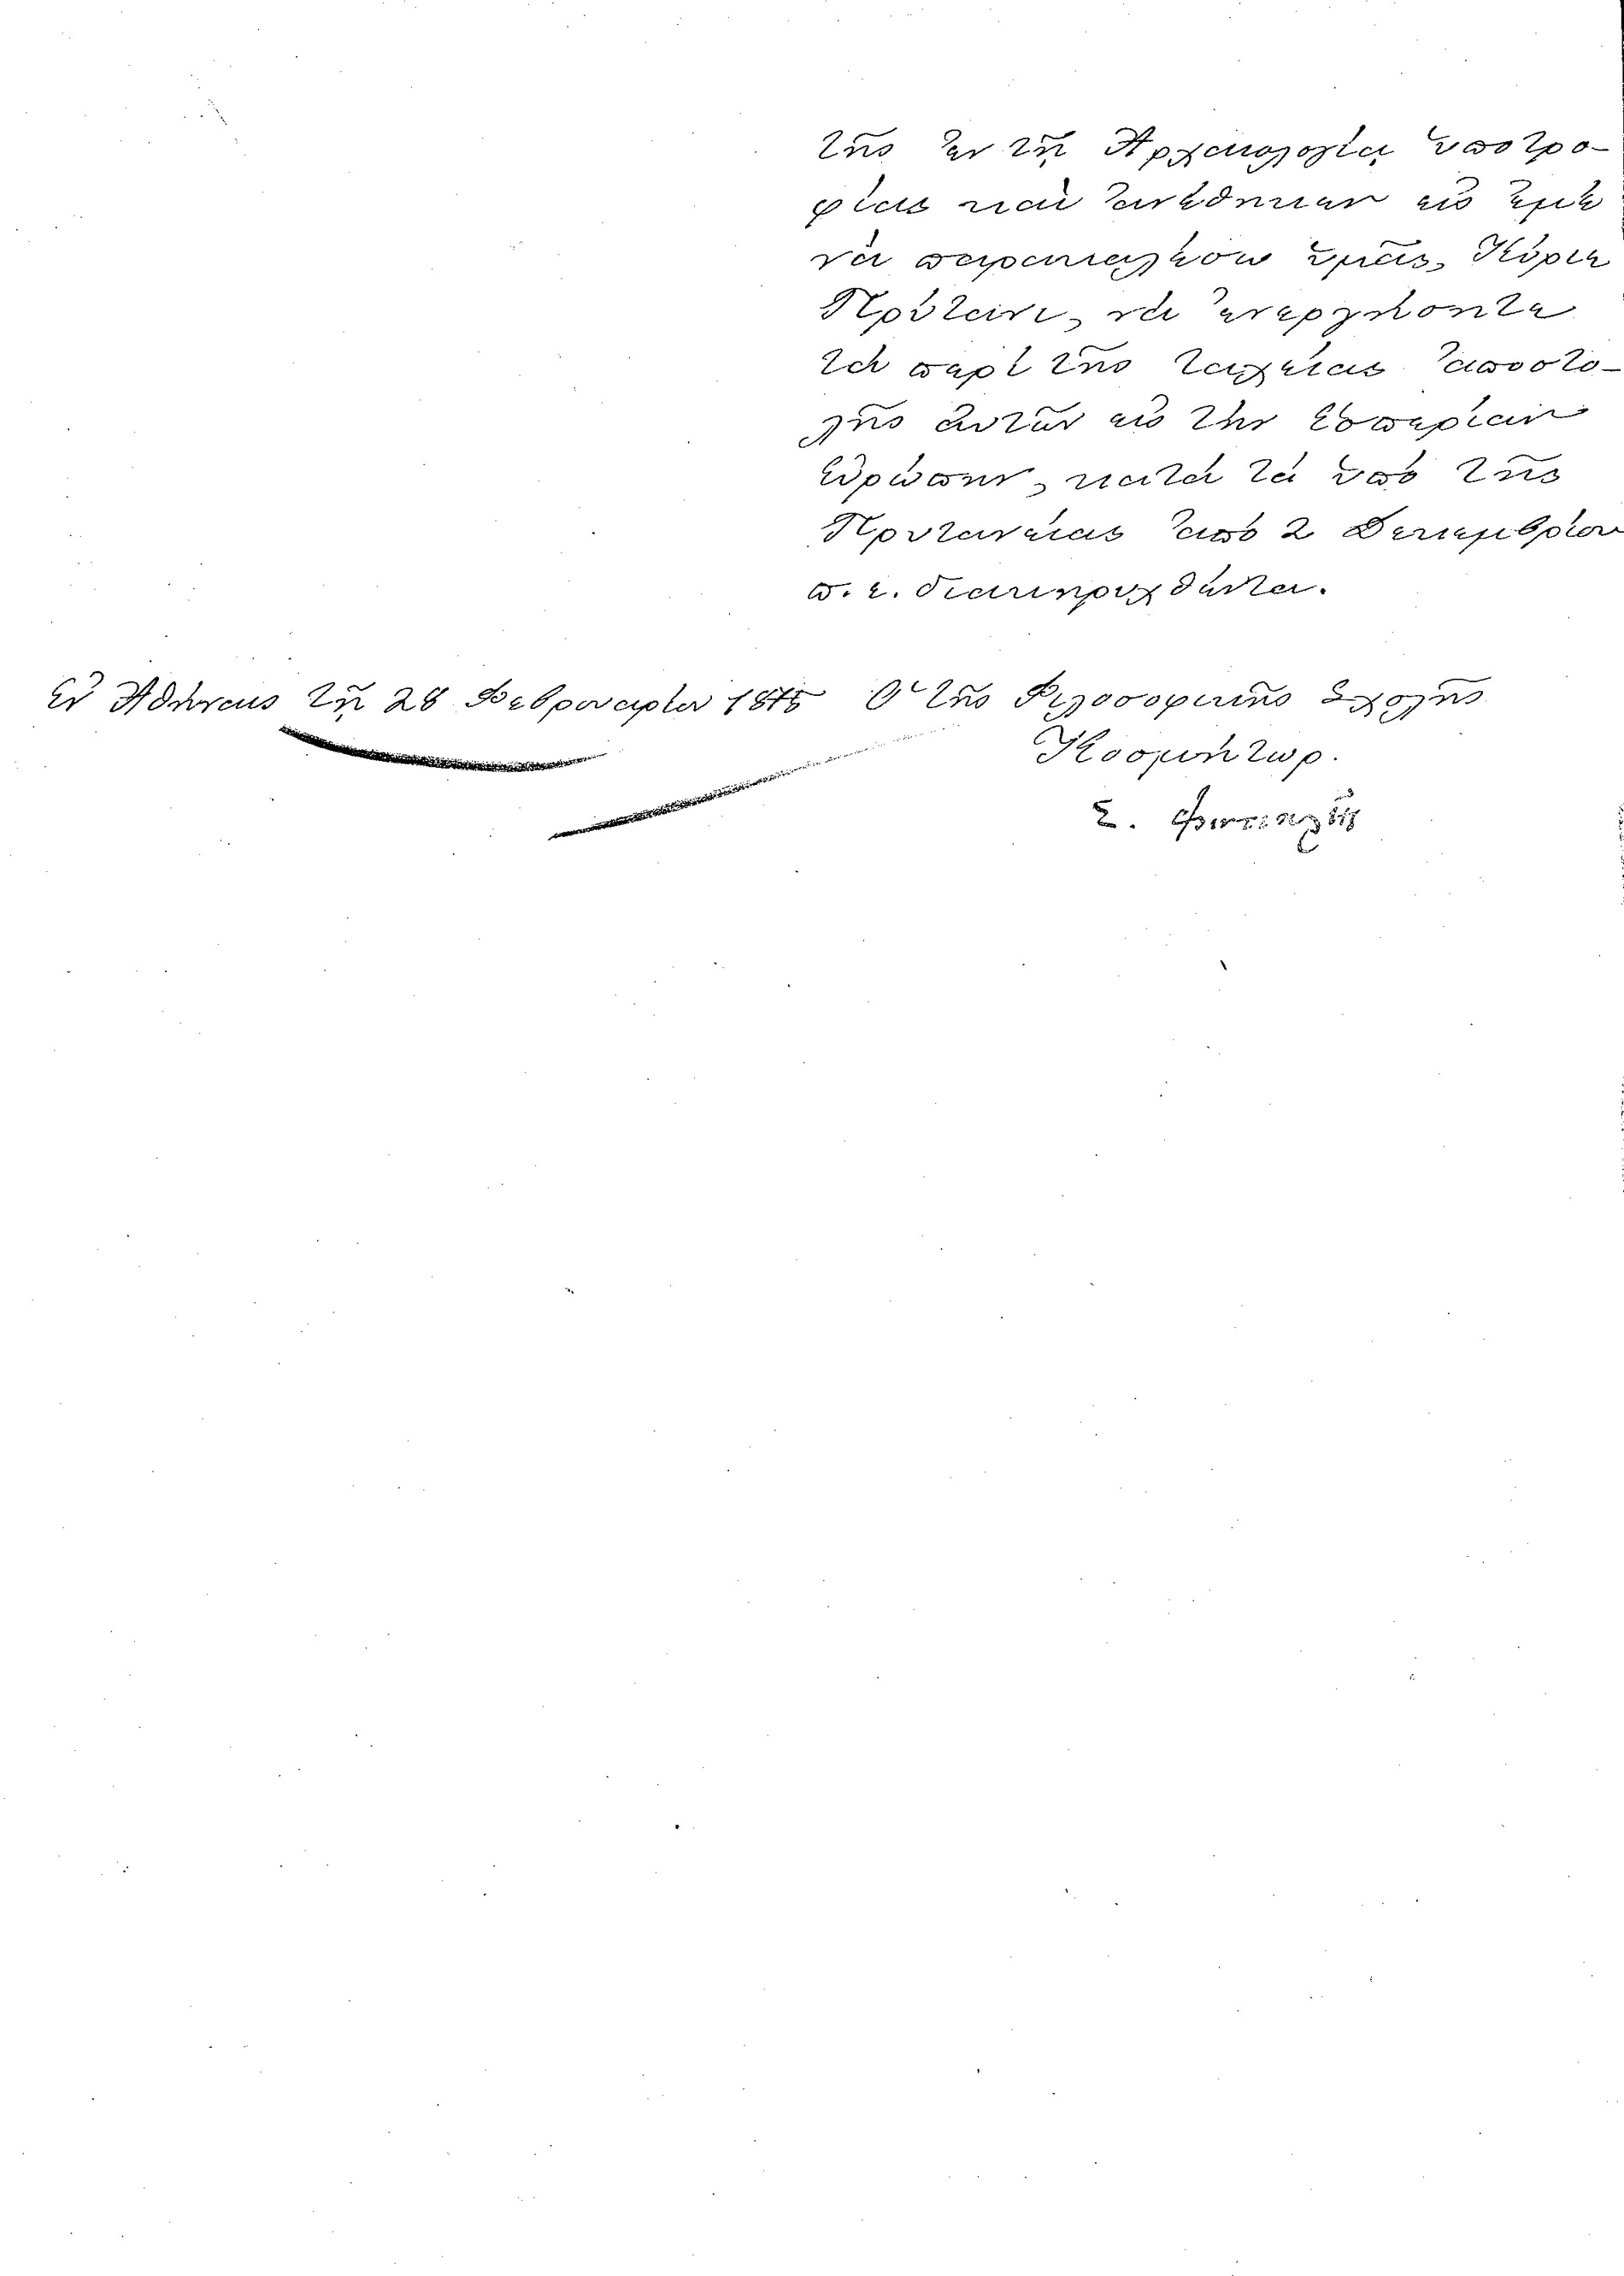 τῆς ἐν τῇ Ἀρχαιολογίᾳ ὑποτρο-
φίας καὶ ἀνέθηκεν εἰς ἐμὲ
νὰ παρακαλέσω ὑμᾶς, Κύριε
Πρύτανι, νὰ ἐνεργήσητε
τὰ περὶ τῆς ταχείας ἀποστο-
λῆς αὐτῶν εἰς τὴν Ἑσπερίαν
Εὐρώπην, κατὰ τὰ ὑπὸ τῆς
Πρυτανείας ἀπὸ 2 Δεκεμβρίου
π. ἔ. διακηρυχθέντα.
Ἐν Ἀθήναις τῇ 28 Φεβρουαρίου 187 Ὁ τῆς Φιλοσοφικῆς Σχολῆς
Κοσμήτωρ.